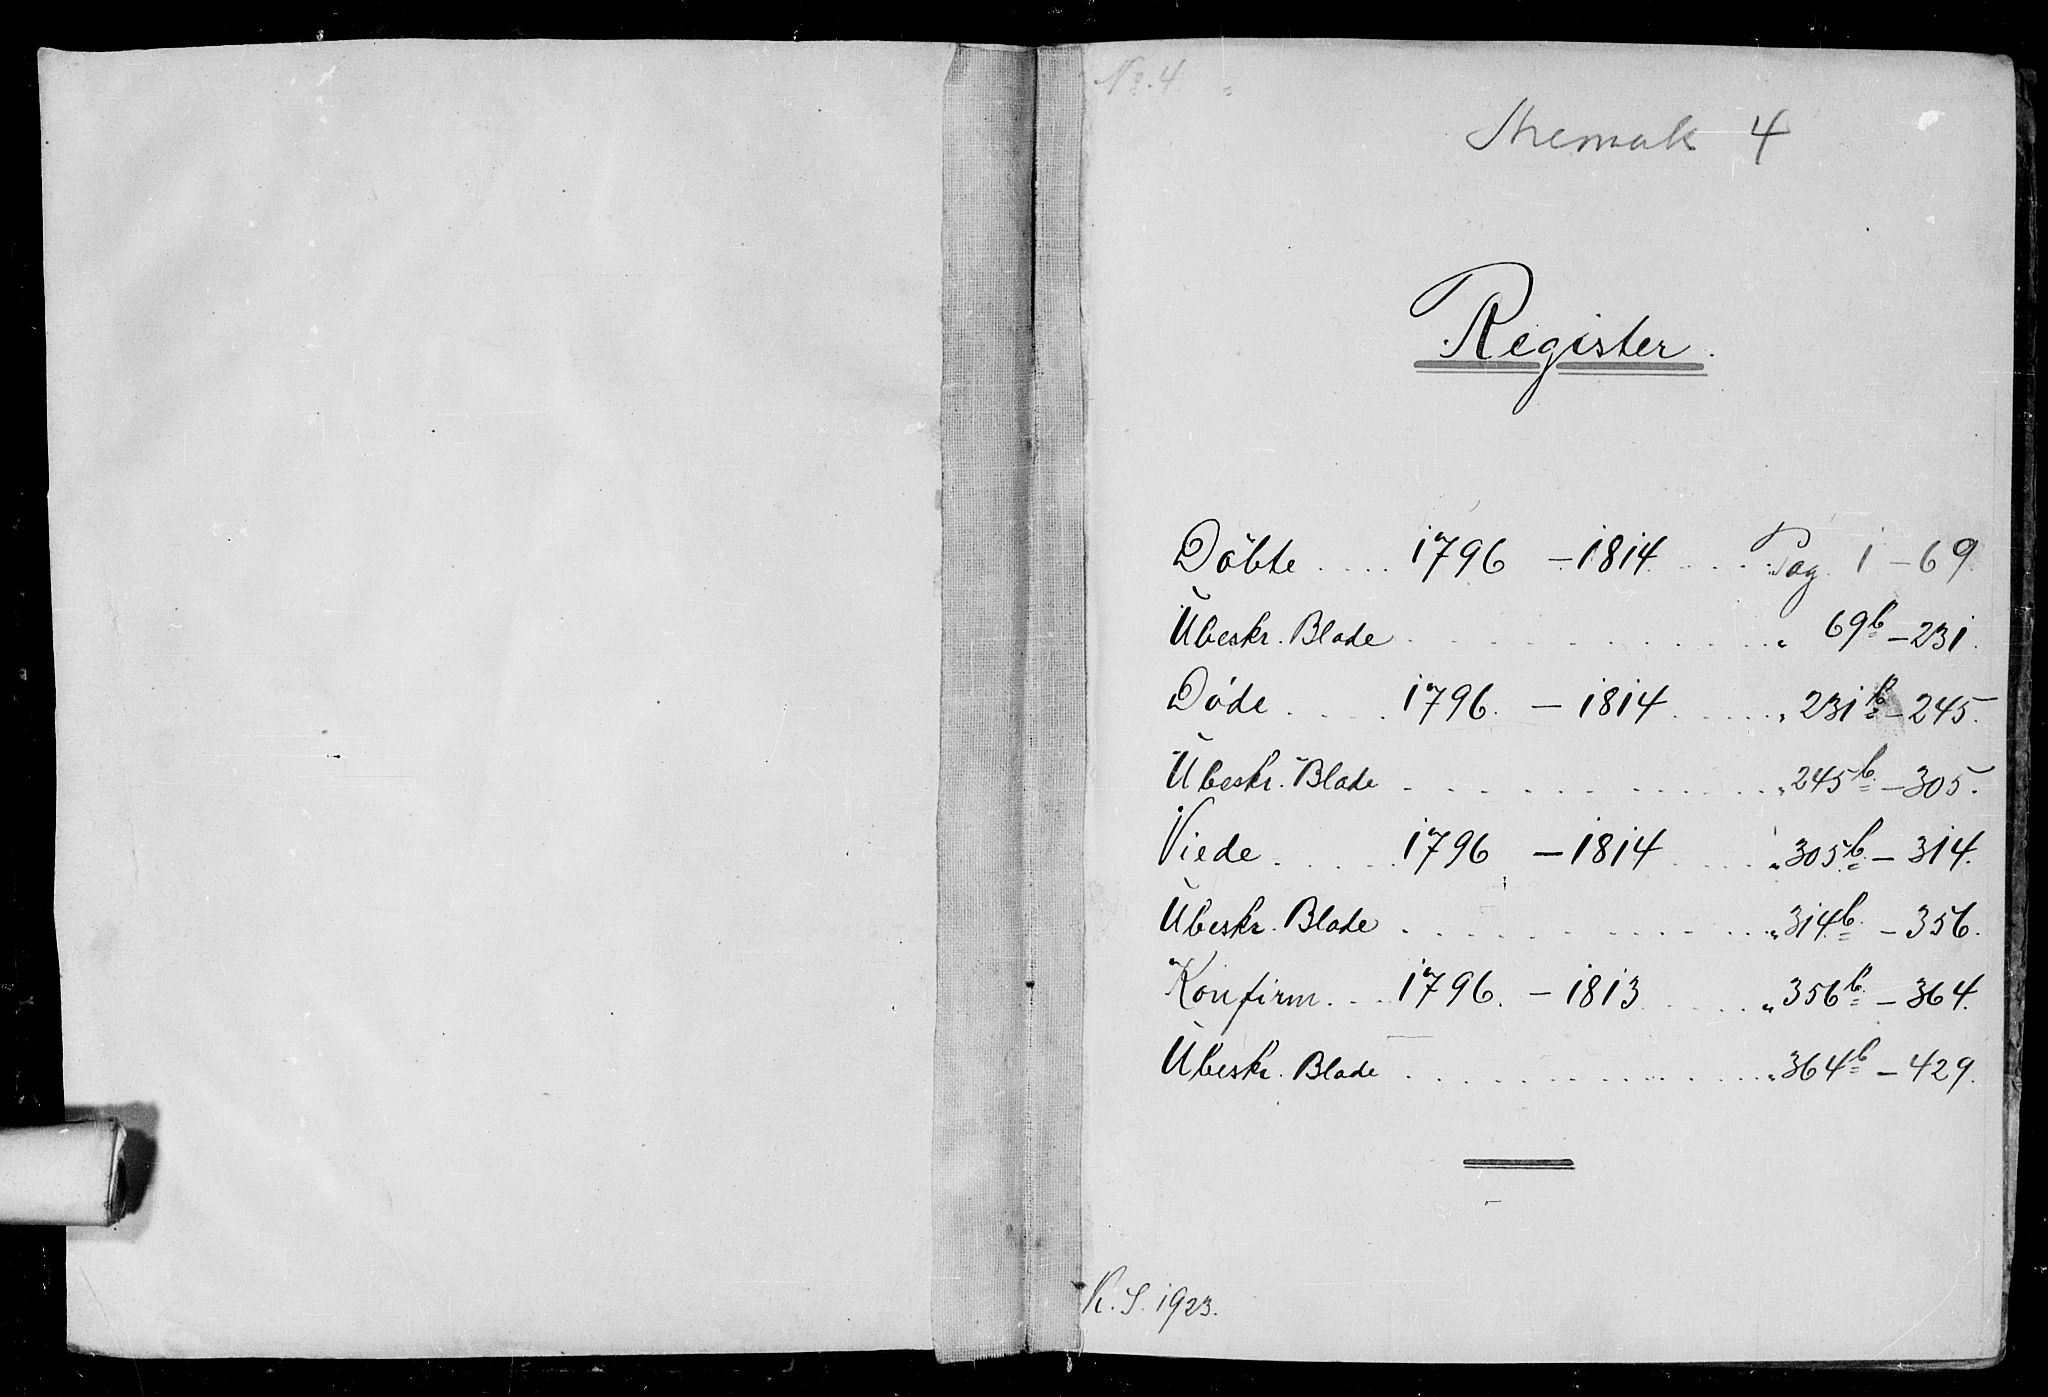 No. 4.
Tremark 4
Register.
Döbte .... 1796 – 1814 .... Pag. 1 – 69
Ubeskr. Blade .............. „ 69b – 231.
Döde .... 1796. – 1814 ..... „ 231b – 245.
Ubeskr. Blade .............. „ 245b – 305.
Viede .... 1796 – 1814 ..... „ 305b – 314.
Ubeskr. Blade .............. „ 314b – 356.
Konfirm. ... 1796. – 1813 ..... „ 356b – 364.
Ubeskr. Blade .............. „ 364b – 429.
K. S. 1923.